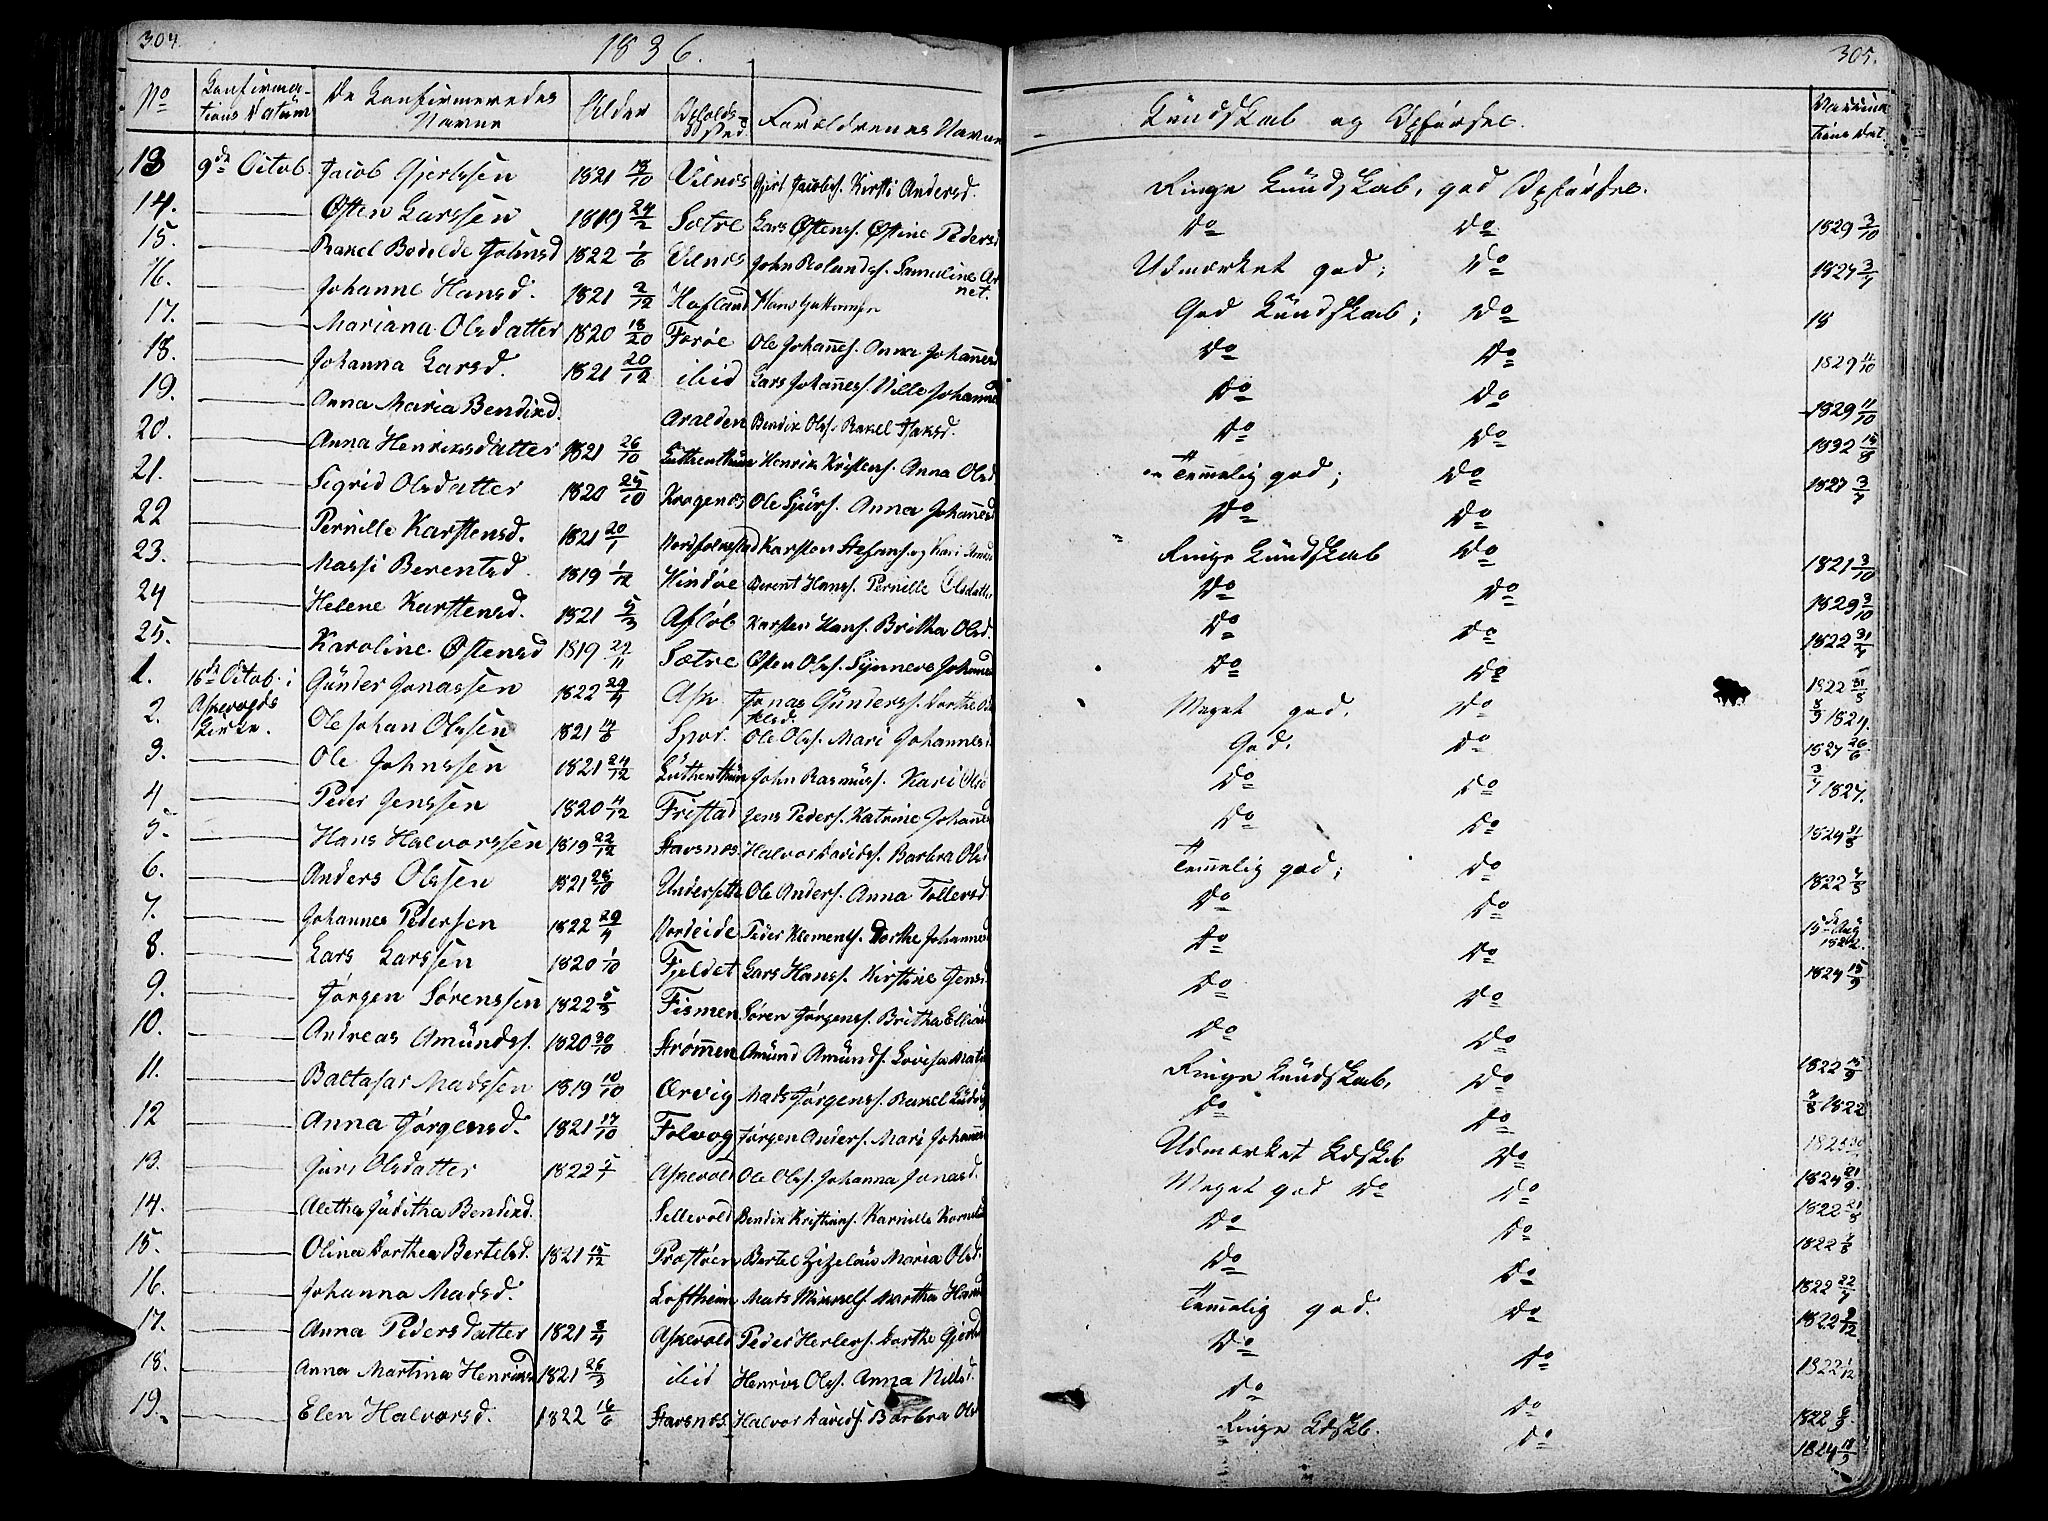 304.
1836.
No Confirmations Datum De Confirmeredes Navne Alder Opholds-Sted Forældrenes Navne
13 9de Octob. Jacob Gjertssen 1821 18/10 Vilnæs Gjert Jacobs. Kirsti Andersd.
14. Østen Larssen 1819 24/2 Sætre Lars Østens. Østine Pedersd
15. Rakel Bodelde Johnsd 1822 1/6 Vilnæs John Rolands. Sameline
16. Johanne Hansd. 1821 2/12 Hafland Hans
17. Mariana Olsdatter 1820 18/20 Forøe Ole Johañes. Anna Johañesd
18. Johanna Larsd. 1821 20/12 ibid Lars Johañes. Nille Johañesd
19. Anna Maria Bendixd. Aralden Bendix Ols. Rakel Isaksd.
20. Anna Henriksdatter 1821 26/10 Henrik Kristens. Anna Olsd.
21. Sigrid Olsdatter 1820 25/10 Kragenæs Ole Sjürs. Anna Johañesd
22 Pernille Karstensd. 1821 20/1 Karsten Stefans. og Kari
23. Massi Berentsd. 1819 1/12 Hindøe Berent Hans. Pernille Olsdatter
24 Helene Karstensd. 1821 5/3 Afløb Karsten Hans. Britha Olsd.
25. Karoline Østensd 1819 22/11 Sætre Østen Ols. Synneve Johañesd
1. 16de Octob. i Askevolds Kirke. Günder Jonassen 1822 29/4 Ask Jonas Günders. Dorthe
2. Ole Johan Olssen 1821 14/6 Spor. Ole Ols. Mari Johannesd
3. Ole Johnssen 1821 24/12 John Rasmüss. Kari Olsd
4. Peder Jenssen 1820 4/12 Fristad Jens Peders. Katrine Johañesd
5. Hans Halvorssen 1819 22/12 Stavsnæs Halvor Davids. Barbra Olsd
6. Anders Olssen 1821 28/10 Undersette Ole Anders. Anna Tollevsd
7. Johannes Pederssen 1822 29/4 Nordeide Peder Klements. Dorthe Johannesd
8. Lars Larssen 1820 1/10 Fjeldet Lars Hans. Kirstine Jensd
9. Jørgen Sørenssen 1822 5/3 Fismen Søren Jørgens. Britha Elliasd
10. Andreas Amünds. 1820 30/10 Strømmen Amünd Amünds. Lovisa
11. Baltasar Madssen 1819 10/10 Ørvig Mads Jørgens. Rakel Lüdvigs
12 Anna Jørgensd. 1821 17/10 Folvog Jørgen Anders. Mari Johañesd
13. Juri Olsdatter 1822 5/1 Askevold Ole Ols. Johanna Jonasd.
14. Aletha Jüditha Bendixd. Sellevold Bendix Kristians. Karnille
15. Olina Dorthea Bertelsd. 1821 15/12 Præstøen Bertel Zizelaüs Maria Olsd.
16. Johanna Madsd. Loftheim Mats Mikkels. Martha Hansd
17. Anna Pedersdatter 1821 8/4 Askevold Peder Herlers. Dorthe
18. Anna Martina Henriksd 1821 26/3 ibid Henrik Ols. Anna Nilsd.
19. Elen Halvorsd. 1822 16/6 Stavsnæs. Halvor Davids. Barbra Olsd
305.
Kündskab og Opførsel.
Ringe Kündskab, god Opførsel.
Do Do 1829 3/10
Udmærket god; Do 1827 3/7
God Kündskab; Do 18
Do Do 1829 11/10
Do Do 1829 11/10
Do Do 1832 15/8
Temelig god; Do 1827 3/7
Do Do
Ringe Kündskab Do 1821 3/10
Do Do 1829 3/10
Do Do 1822 31/7
Do Do 1822 31/8
Meget god. Do 1827.
God. Do 1827 26/6
Do Do 3/7 1827.
Do Do 1824 31/8
Temelig god; Do 1822 7/5
Do Do 15de Aug 1822.
Do Do 1824 15/9
Do Do
Do Do 1822 15/9
Ringe Kündskab, Do 7/8 1822
Do Do
Udmærket Kdskb Do 1824 21/9.
Meget god Do Do 1822 21/8
Do Do 1822 7/8
Do Do 1822 22/7
Temelig god. Do 1822 9/12.
Do Do 1822 1/12
Do Do 1822 8/9.
Ringe Kdskb. Do 1824 18/9